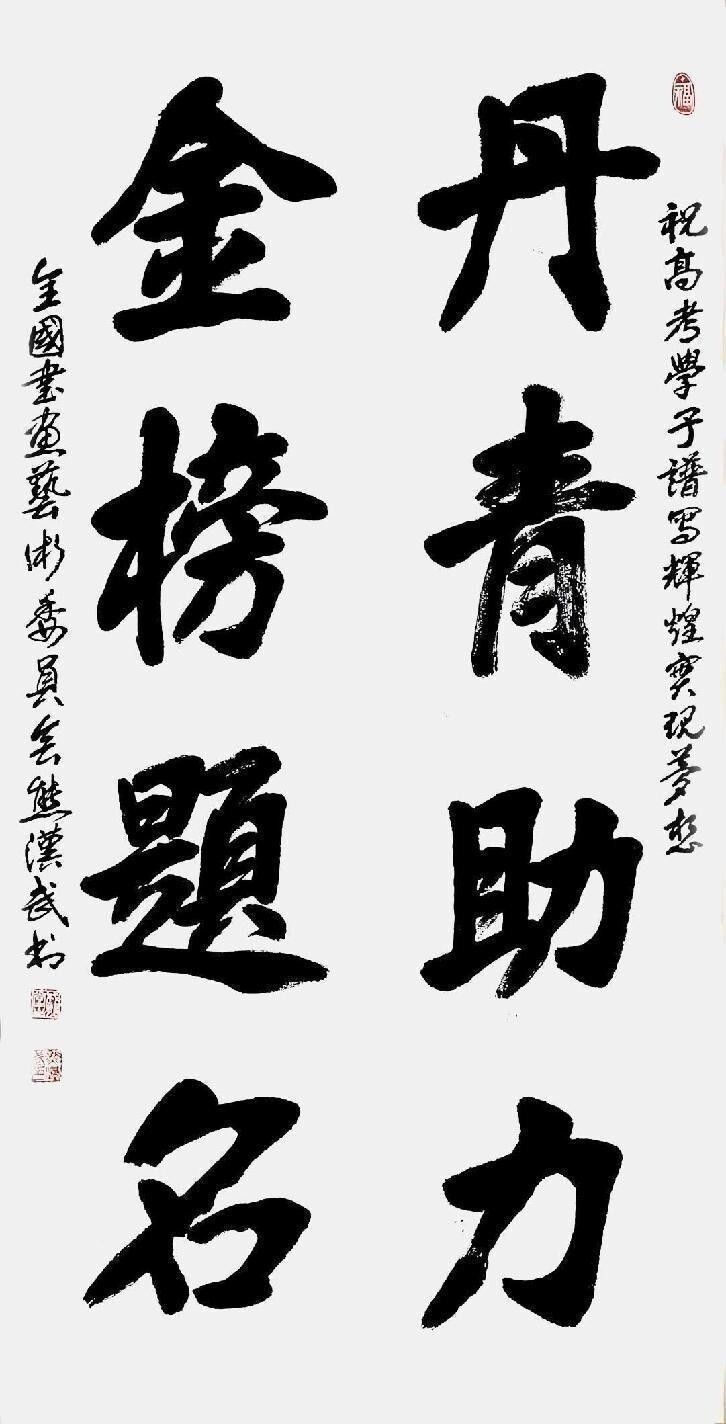 祝高考學子譜写輝煌实現夢想
丹青助力
金榜題名
全國书画藝術委員会熊漢武书
福